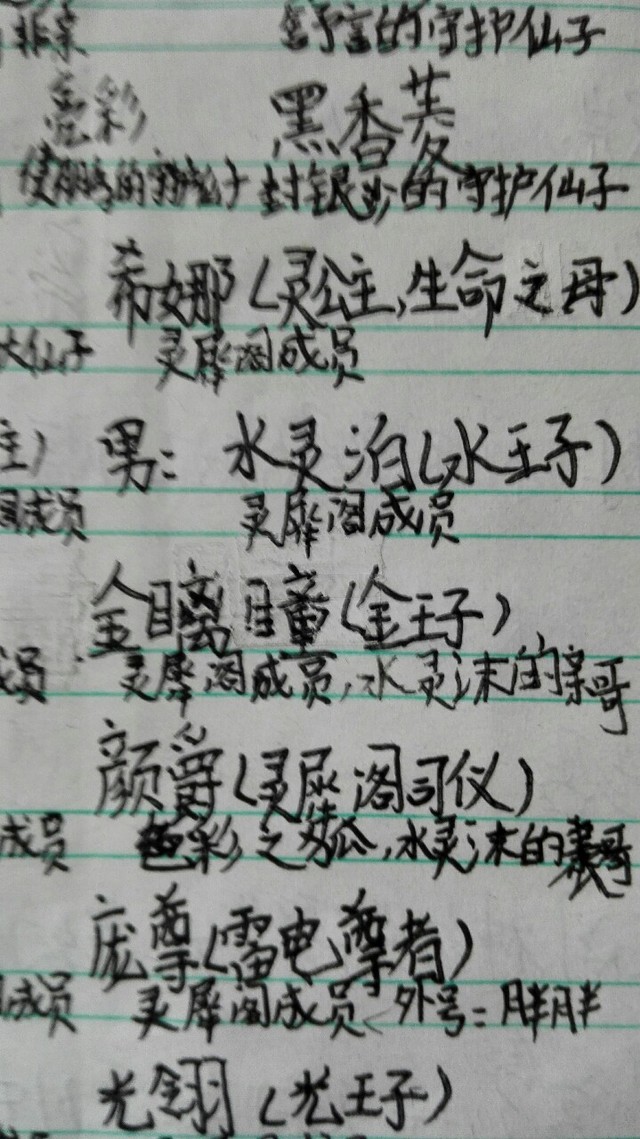 舒言的守护仙子
亮彩 黑香菱
的守护仙子 封银沙的守护仙子
希娜(灵公主,生命之母)
大仙子 灵犀阁成员
主) 男: 水灵泊(水王子)
阁成员 灵犀阁成员
金瞒瞳(金王子)
成员 灵犀阁成员,水灵沫的亲哥
颜爵(灵犀阁司仪)
成员 色彩之狐,水灵沫的表哥
庞尊(雷电尊者)
成员 灵犀阁成员 外号:胖胖
光翎(光王子)